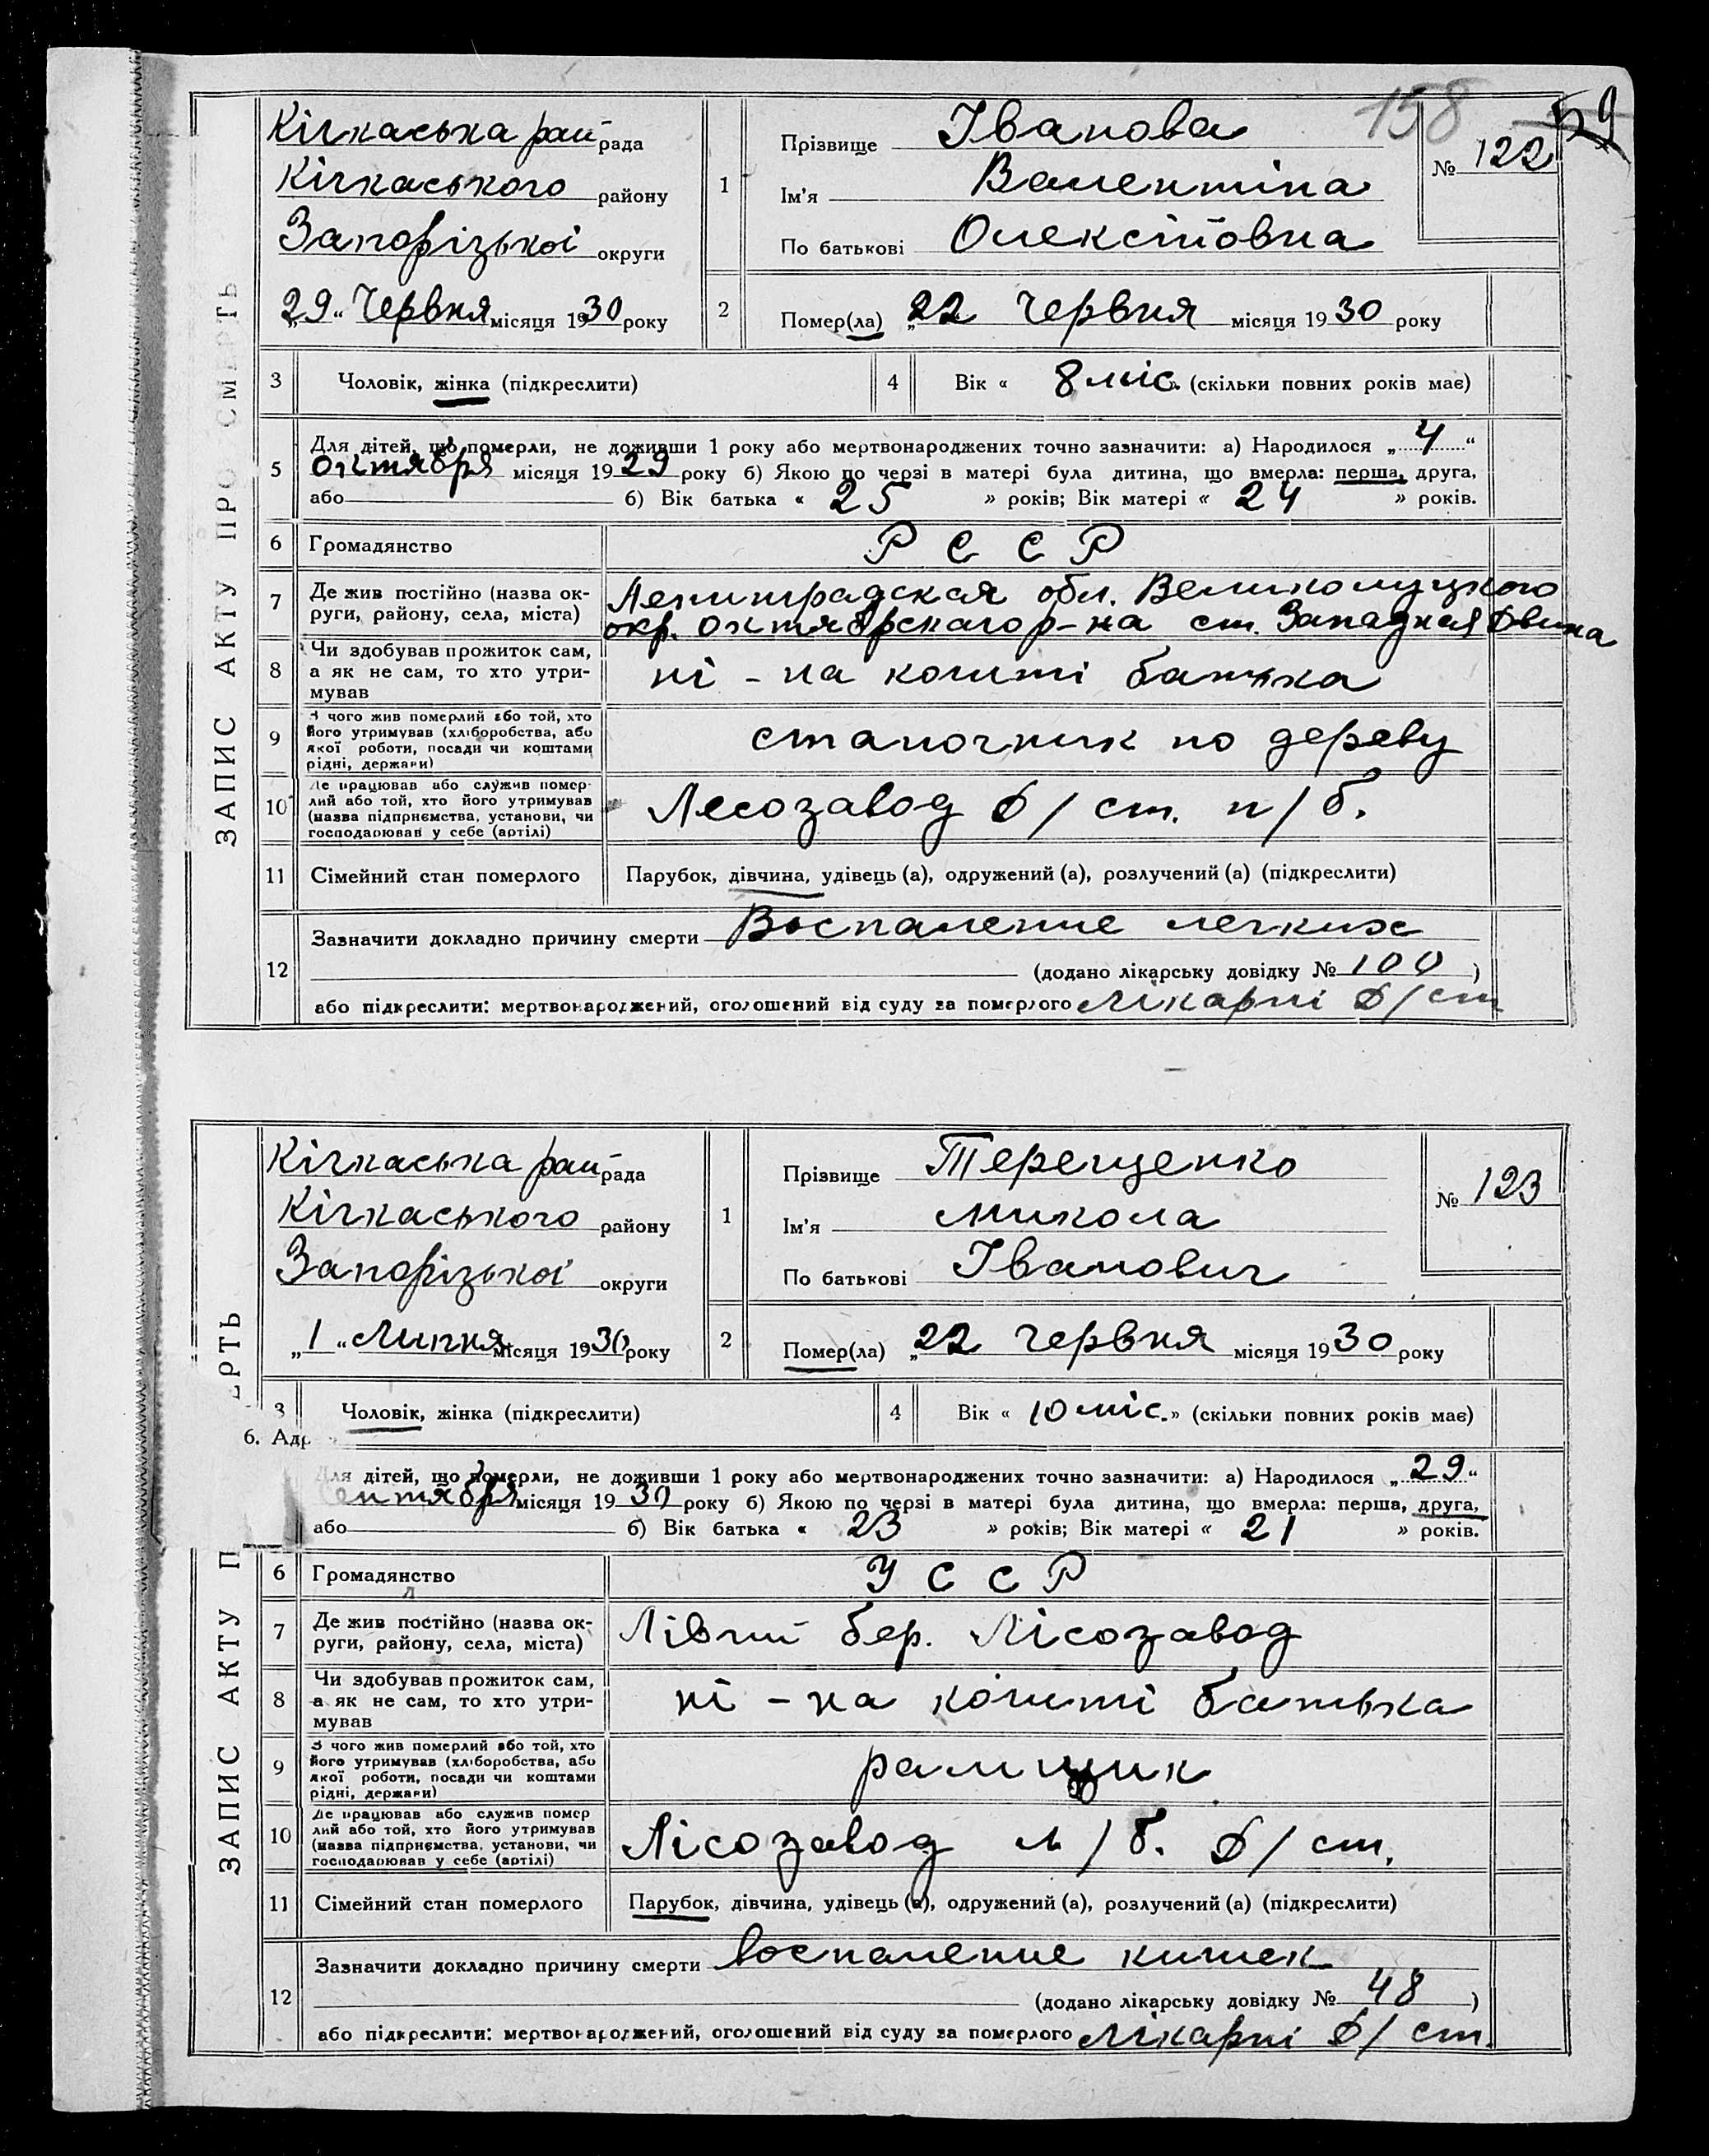 158 59
Кічкаська рай рада
Кічкаського району
Запорізької округи
„29“ Червня місяця 1930 року
1
Прізвище Іванова
Ім'я Валентіна
По батькові Олексіївна
№ 122
2
Помер(ла) „22 червня місяця 1930 року
3 Чоловік, жінка (підкреслити)
4 Вік « 8 міс. (скільки повних років має)
5
Для дітей, що померли, не доживши 1 року або мертвонароджених точно зазначити: а) Народилося „4“
октября місяця 1929 року б) Якою по черзі в матері була дитина, що вмерла: перша, друга,
або б) Вік батька « 25 » років; Вік матері « 24 » років.
6 Громадянство Р С С Р
7 Де жив постійно (назва ок-
руги, району, села, міста)
Ленинградская обл. Великолуцкого
окр. Октябрскаго р-на ст. Западная Двина
8 Чи здобував прожиток сам,
а як не сам, то хто утри-
мував
ні - на кошті батька
9 З чого жив померлий або той, хто
його утримував (хліборобства, або
якої роботи, посади чи коштами
рідні, держави)
станочник по дереву
10 Де працював або служив помер-
лий або той, хто його утримував
(назва підприємства, установи, чи
господарював у себе (артілі)
Лесозавод Д/ ст. п/б.
11 Сімейний стан померлого Парубок, дівчина, удівець (а), одружений (а), розлучений (а) (підкреслити)
12
Зазначити докладно причину смерти Воспаление легких
(додано лікарську довідку № 100 )
або підкреслити: мертвонароджений, оголошений від суду за померлого Лікарні Д/ст
ЗАПИС АКТУ ПРО СМЕРТЬ
Кічкаська рай рада
Кічкаського району
Запорізької округи
„1“ Липня місяця 1930 року
1
Прізвище Терещенко
Ім'я Микола
По батькові Іванович
№ 123
2
Помер(ла) „22 червня місяця 1930 року
3 Чоловік, жінка (підкреслити)
4 Вік « 10 міс. » (скільки повних років має)
6. Адр
Для дітей, що померли, не доживши 1 року або мертвонароджених точно зазначити: а) Народилося „29“
ентября місяця 19 року б) Якою по черзі в матері була дитина, що вмерла: перша, друга,
або б) Вік батька « 23 » років; Вік матері « 21 » років.
6 Громадянство У С С Р
7 Де жив постійно (назва ок-
руги, району, села, міста)
Лівий бер. Лісозавод
8 Чи здобував прожиток сам,
а як не сам, то хто утри-
мував
ні - на кошті батька
9 З чого жив померлий або той, хто
його утримував (хліборобства, або
якої роботи, посади чи коштами
рідні, держави)
рамщик
10 Де працював або служив помер
лий або той, хто його утримував
(назва підприємства, установи, чи
господарював у себе (артілі)
Лісозавод л/б. Д/ ст.
11 Сімейний стан померлого Парубок, дівчина, удівець (а), одружений (а), розлучений (а) (підкреслити)
12
Зазначити докладно причину смерти воспаление кишек
(додано лікарську довідку № 48 )
або підкреслити: мертвонароджений, оголошений від суду за померлого Лікарні Д/ ст.
ЗАПИС АКТУ П ЕРТЬ